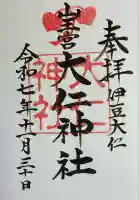 奉拝 伊豆大仁
大仁神社
令和七年十一月三十日
大仁
神社